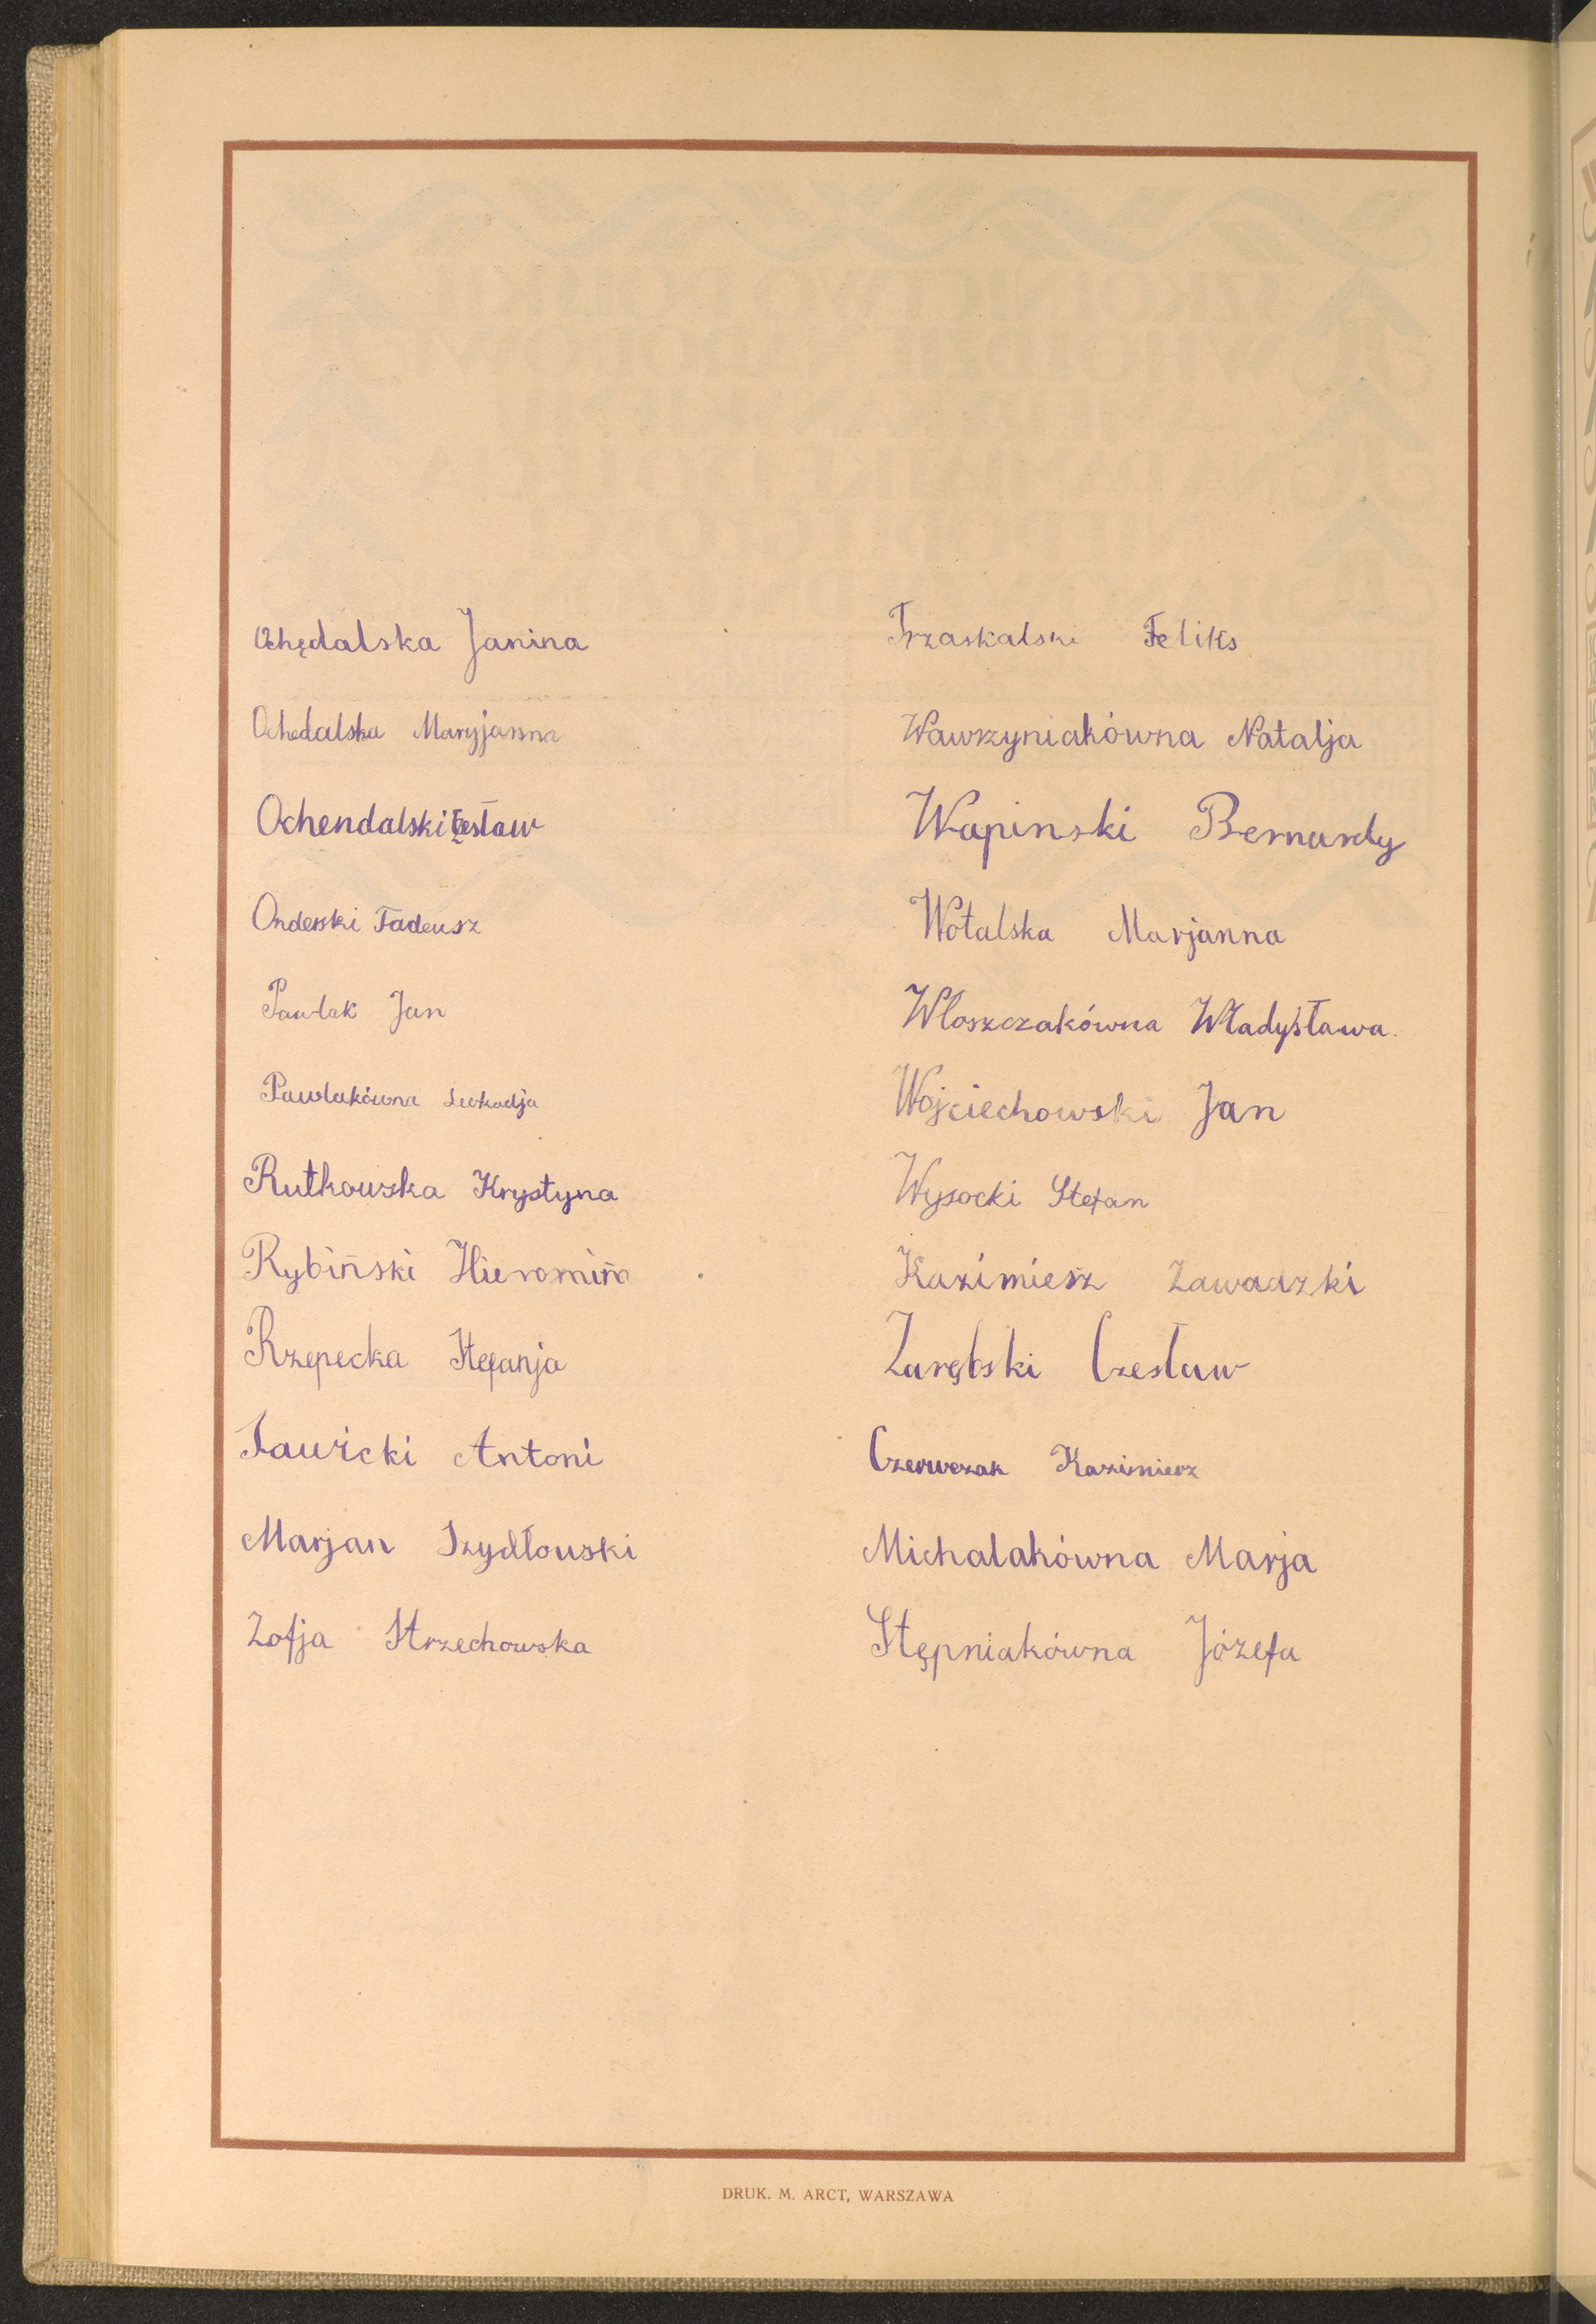 Ochędalska Janina
Ochedalska Maryjanna
Ochendalski Czesław
Onderski Tadeusz
Pawlak Jan
Pawlakówna Leokadja
Rutkowska Krystyna
Rybiński Hieronim
Rzepecka Stefanja
Sawicki Antoni
Marjan Szydłowski
Zofja Strzechowska
Trzaskalski Feliks
Wawrzyniakówna Natalja
Wapinski Bernardy
Wotalska Marjanna
Włoszczakówna Władysława.
Wojciechowski Jan
Wysocki Stefan
Kazimiesz Zawadzki
Zarębski Czesław
Czerwczak Kazimierz
Michalakówna Marja
Stępniakówna Józefa
DRUK. M. ARCT, WARSZAWA